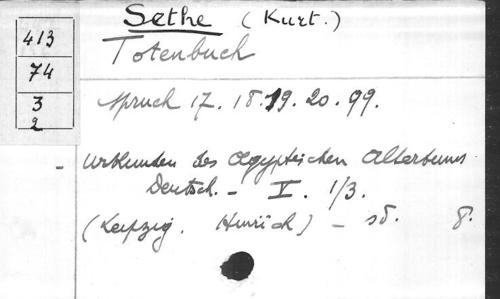 Sethe (Kurt.)
413
74
3
2
Totenbuch
Spruch 17. 18. 19. 20. 99.
- Urkunden des aegyptischen Altertums
Deutsch. - V. 1/3.
(Leipzig. Hinrich) - sd. 8.